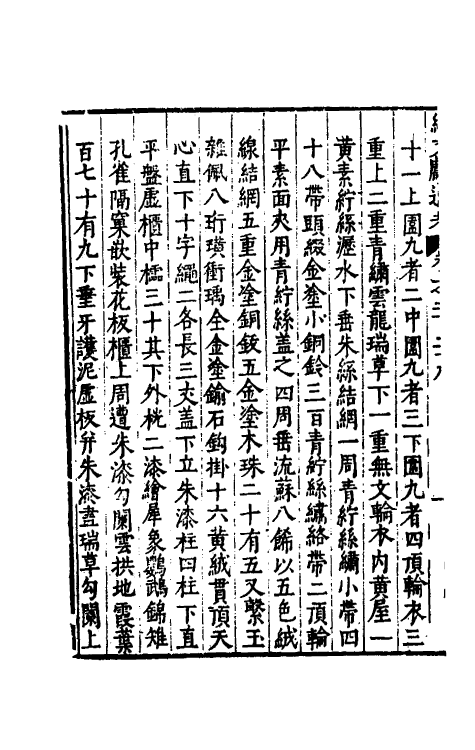 十一上圎九者二中圎九者三下圎九者四頂輪衣三
重上二重青繡雲龍瑞草下一重無文輪衣内黄屋一
黄素紵絲瀝水下垂朱絲結網一周青紵絲繡小帶四
十八帶頭綴金塗小銅鈴三百青紵絲繡絡帶二頂輪
平素面夾用青紵絲盖之四周垂流蘇八餙以五色絨
線結網五重金塗銅鈸五金塗木珠二十有五又繫玉
雜佩八珩璜衝瑀全金塗鍮石鈎掛十六黄絨貫頂天
心直下十字繩二各長三丈盖下立朱漆柱四柱下直
平盤虚櫃中櫺三十其下外桄二漆繪犀象鸚鵡錦雉
孔雀隔窠嵌装花板櫃上周遭朱漆勾闌雲拱地霞葉
百七十有九下垂牙護泥虚板并朱漆畫瑞草勾闌上